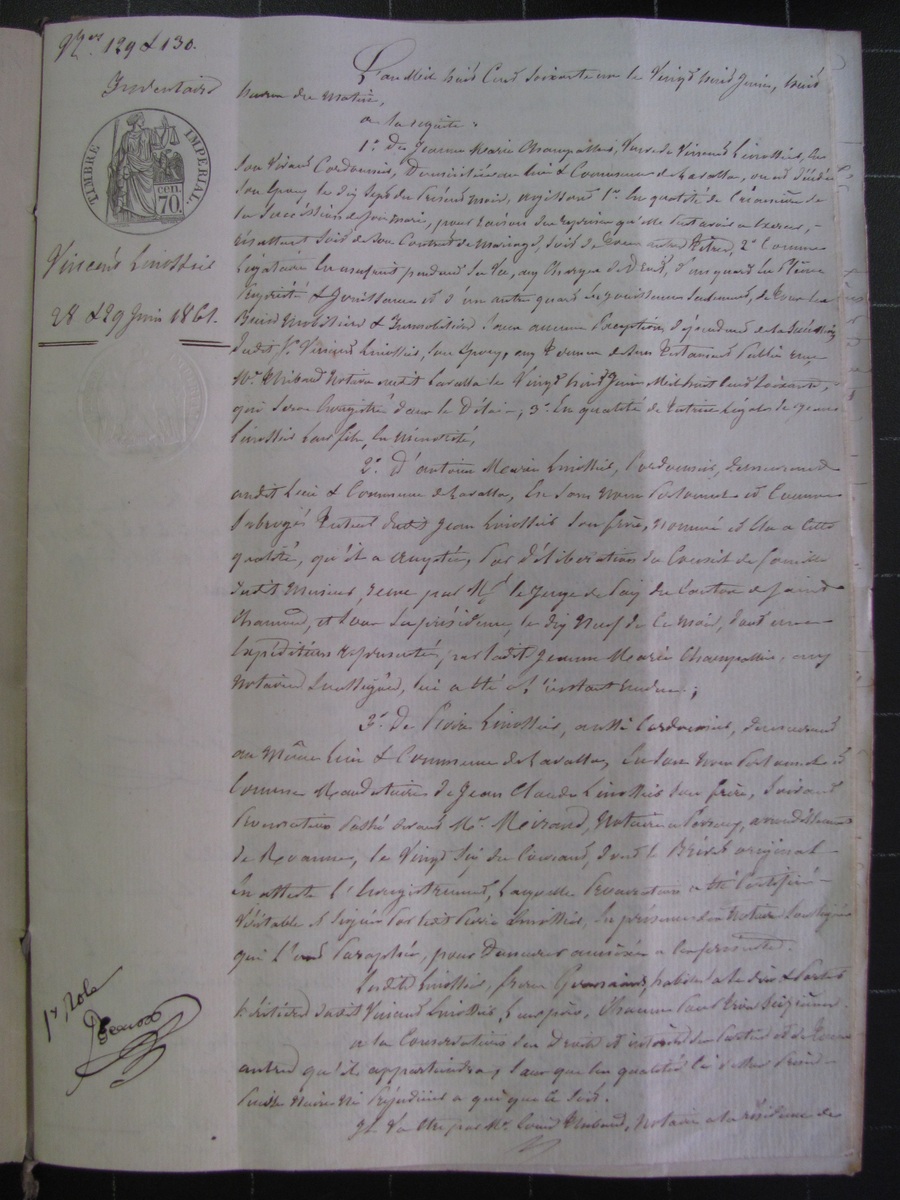 Nos 129 & 130.
Inventaire
TIMBRE IMPERIAL
70 cen.
Vincent Linossier
28 & 29 Juin 1861.
L'an Mil huit Cent Soixante un le Vingt huit Juin, huit
heures du Matin,
a la requête :
1° De Jeanne Marie Champallier, Veuve de Vincent Linossier,
Son Vivant Cordonnier, Domiciliée au lieu & Commune de Lavalla, ou est décédé
Son Epoux le dix Sept du Présent mois, agissant 1° En qualité de Créancière de
la Succession de Son Mari, pour raison des reprises qu'elle peut avoir a Exercer,
résultant Soit de Son Contrat de Mariage, Soit de tous autres titres, 2° Comme
Légataire En usufruit pendant Sa Vie, d'un quart En Pleine
Propriété & Jouissance et d'un autre quart En jouissance Seulement, de tous les
Biens Mobiliers & Immobiliers Sans aucune Exception, dépendant de la Succession
dudit Sr Vincent Linossier, Son Epoux, aux termes de Son Testament Public reçu
Me Thibaud Notaire audit Lavalla le Vingt huit Juin Mil huit Cent Soixante,
qui Sera Enregistré dans le Délai, 3° En qualité de Tutrice Légale de Jean
Linossier Son fils, En Minorité,
2° D'antoine Marie Linossier, Cordonnier, demeurant
audit Lieu & Commune de Lavalla, En Son Nom Personnel et Comme
Subrogé Tuteur dudit Jean Linossier Son frère, nommé et Elu a Cette
qualité, qu'il a acceptée, Par Délibération du Conseil de famille
dudit Mineur, reçue par Mr le Juge de Paix du Canton de Saint
Chamond, et Sous Sa présidence, le dix Neuf de Ce Mois, dont une
Expédition représentée, par ladite Jeanne Marie Champallier, aux
Notaires Soussignés, lui a été a l'instant rendue ;
3° De Pierre Linossier, aussi Cordonnier, demeurant
au Même Lieu & Commune de Lavalla, En Son Nom Personnel et
Comme Mandataire de Jean Claude Linossier Son frère, Suivant
Procuration Passée devant Me Morand, Notaire a Perreux, arrondissement
de Roanne, le Vingt Six du Courant, dont le Brevet original
En atteste l'Enregistrement, Laquelle Procuration a été Certifiée
Véritable & Signée Par ledit Pierre Linossier, En présence des Notaires Soussignés
qui l'ont Paraphée, pour Demeurer annexée a la présente.
Lesdits Linossier, frères Germains, habiles a Se dire & Porter
héritiers dudit Vincent Linossier, Leur père, Chacun Pour
a la Conservation des Droits et intérêts des Parties et de tous
autres qu'il appartiendra, Sans que les qualités Ci dessus Prises
Puisse Nuire Ni Préjudicier a qui que Ce Soit.
Il Va Etre par Me Louis Thibaud, Notaire a la résidence de
1er Role